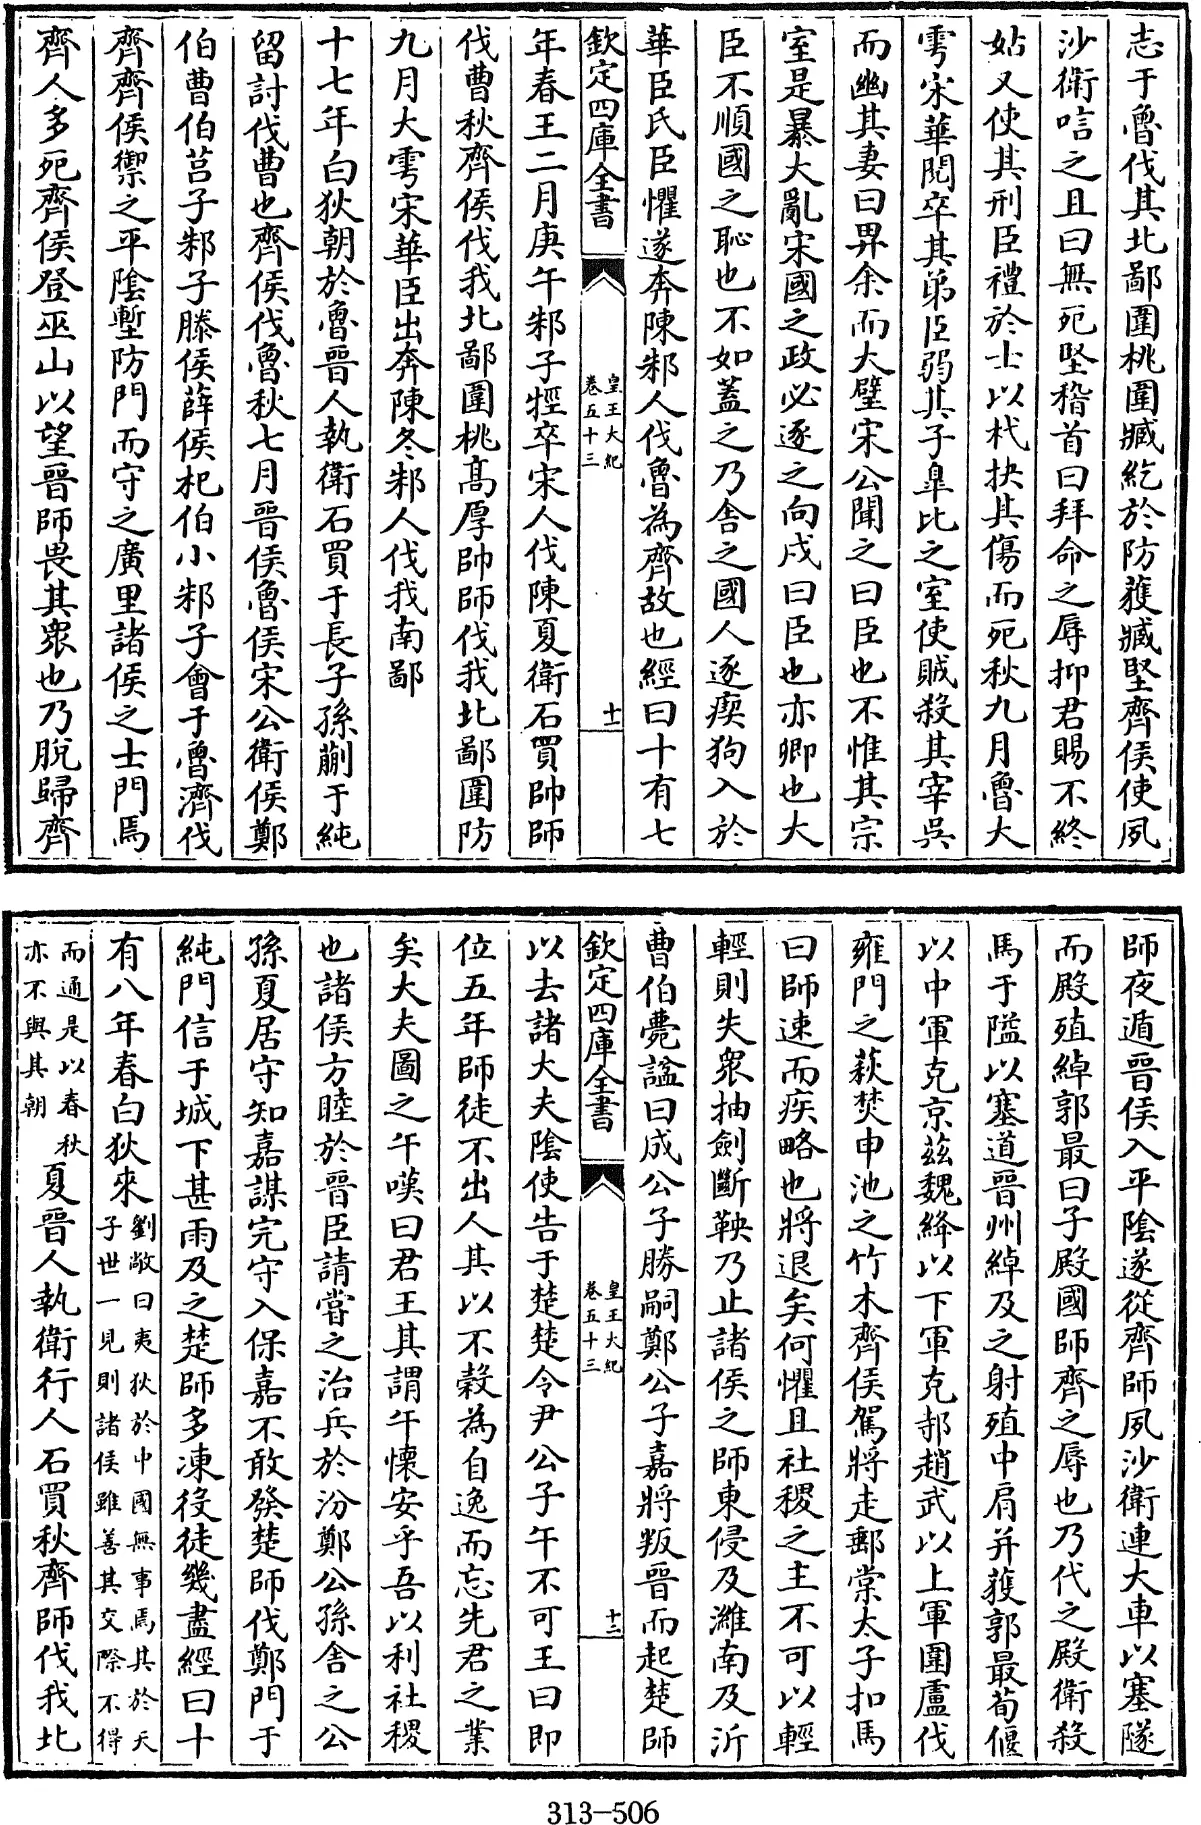 志于魯伐其北鄙圍桃圍臧紇於防獲臧堅齊侯使夙
沙衛唁之且曰無死堅稽首曰拜命之辱抑君賜不終
姑又使其刑臣禮於士以杙抉其傷而死秋九月魯大
雩宋華閱卒其弟臣弱其子臯比之室使賊殺其宰吳
而幽其妻曰畀余而大璧宋公聞之曰臣也不惟其宗
室是暴大亂宋國之政必逐之向戌曰臣也亦卿也大
臣不順國之恥也不如蓋之乃舍之國人逐瘈狗入於
華臣氏臣懼遂奔陳邾人伐魯為齊故也經曰十有七
欽定四庫全書
皇王大紀
卷五十三
十一
年春王二月庚午邾子牼卒宋人伐陳夏衛石買帥師
伐曹秋齊侯伐我北鄙圍桃高厚帥師伐我北鄙圍防
九月大雩宋華臣出奔陳冬邾人伐我南鄙
十七年白狄朝於魯晉人執衛石買于長子孫蒯于純
留討伐曹也齊侯伐魯秋七月晉侯魯侯宋公衛侯鄭
伯曹伯莒子邾子滕侯薛侯杞伯小邾子會于魯濟伐
齊齊侯禦之平陰塹防門而守之廣里諸侯之士門焉
齊人多死齊侯登巫山以望晉師畏其衆也乃脫歸齊
師夜遁晉侯入平陰遂從齊師夙沙衛連大車以塞隧
而殿殖綽郭最曰子殿國師齊之辱也乃代之殿衛殺
馬于隘以塞道晉州綽及之射殖中肩并獲郭最荀偃
以中軍克京兹魏絳以下軍克邿趙武以上軍圍盧伐
雍門之萩焚申池之竹木齊侯駕將走郵棠太子扣馬
曰師速而疾略也將退矣何懼且社稷之主不可以輕
輕則失衆抽劍斷鞅乃止諸侯之師東侵及濰南及沂
曹伯薨謚曰成公子勝嗣鄭公子嘉將叛晉而起楚師
欽定四庫全書
皇王大紀
卷五十三
十二
以去諸大夫陰使告于楚楚令尹公子午不可王曰即
位五年師徒不出人其以不穀為自逸而忘先君之業
矣大夫圖之午嘆曰君王其謂午懷安乎吾以利社稷
也諸侯方睦於晉臣請嘗之治兵於汾鄭公孫舍之公
孫夏居守知嘉謀完守入保嘉不敢發楚師伐鄭門于
純門信于城下甚雨及之楚師多凍役徒幾盡經曰十
有八年春白狄來劉敞曰夷狄於中國無事焉其於天
子世一見則諸侯雖善其交際不得
而通是以春秋
亦不與其朝夏晉人執衛行人石買秋齊師伐我北
313-506